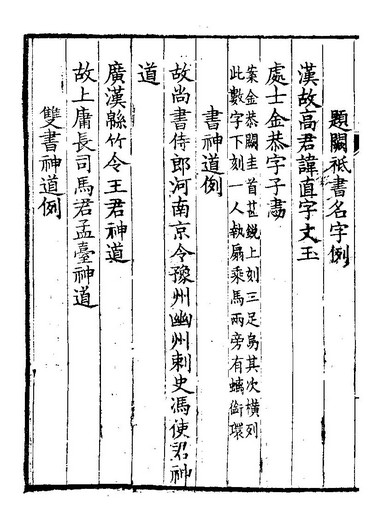 題闕祗書名字例
漢故高君諱直字文玉
處士金恭字子肅
案金恭闕圭首甚銳上刻三足烏其次橫列
此數字下刻一人執扇乘馬兩旁有螭銜環
書神道例
故尚書侍郎河南京令豫州幽州刺史馮使君神
道
廣漢緜竹令王君神道
故上庸長司馬君孟臺神道
雙書神道例